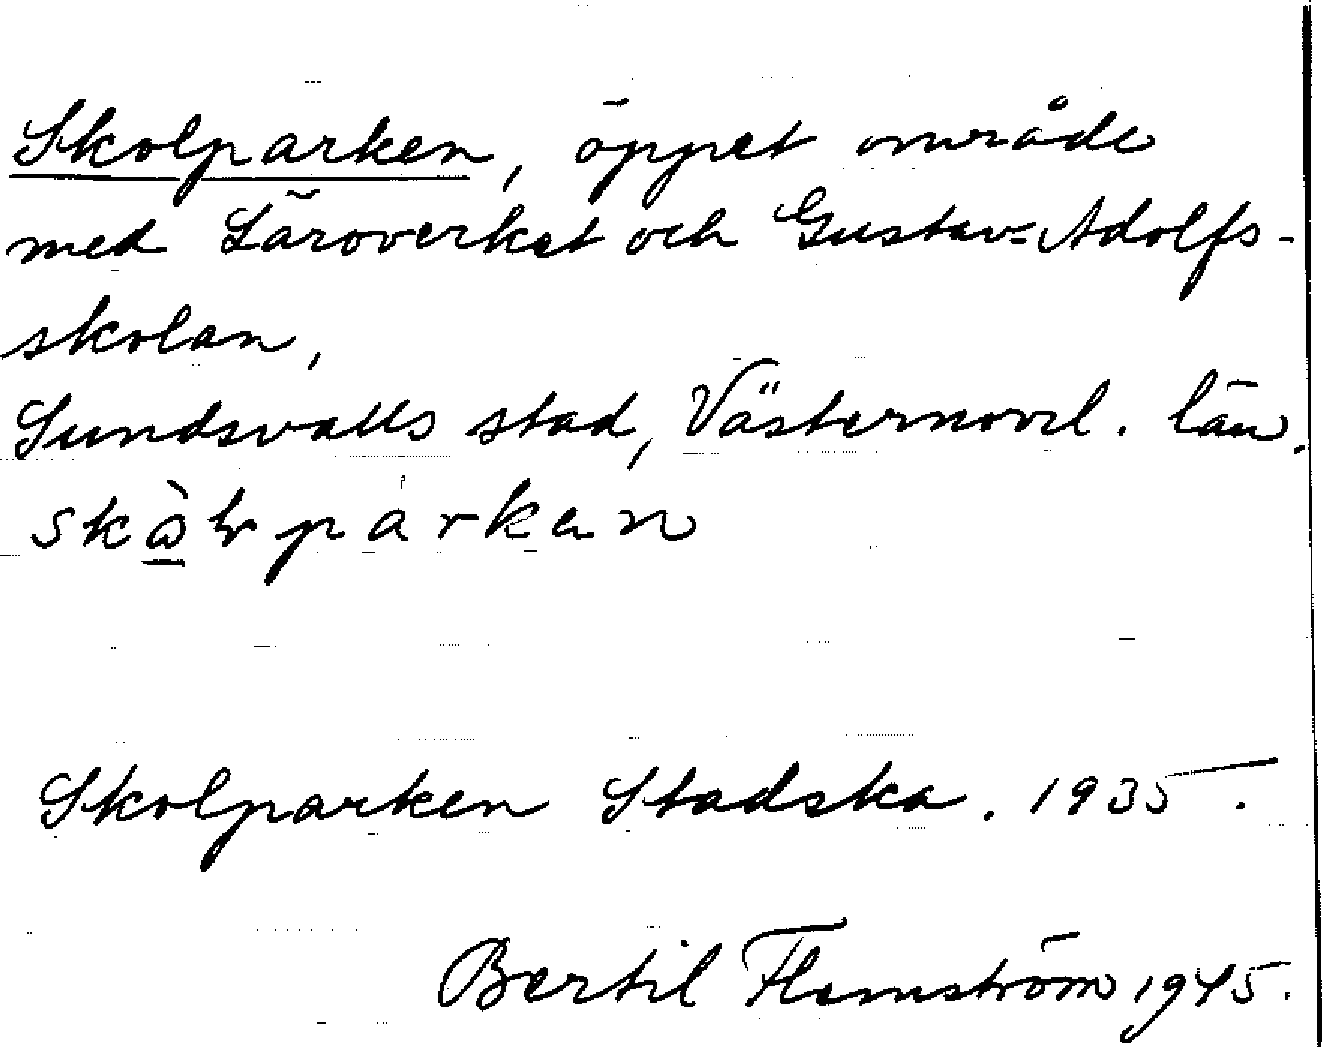 Skolparken, öppet område
med Läroverket och Gustav-Adolfs-
skolan,
Sundsvalls stad, Västernorrl. län.
Skolparken Stadska. 1935.
Bertil Flemström 1945.